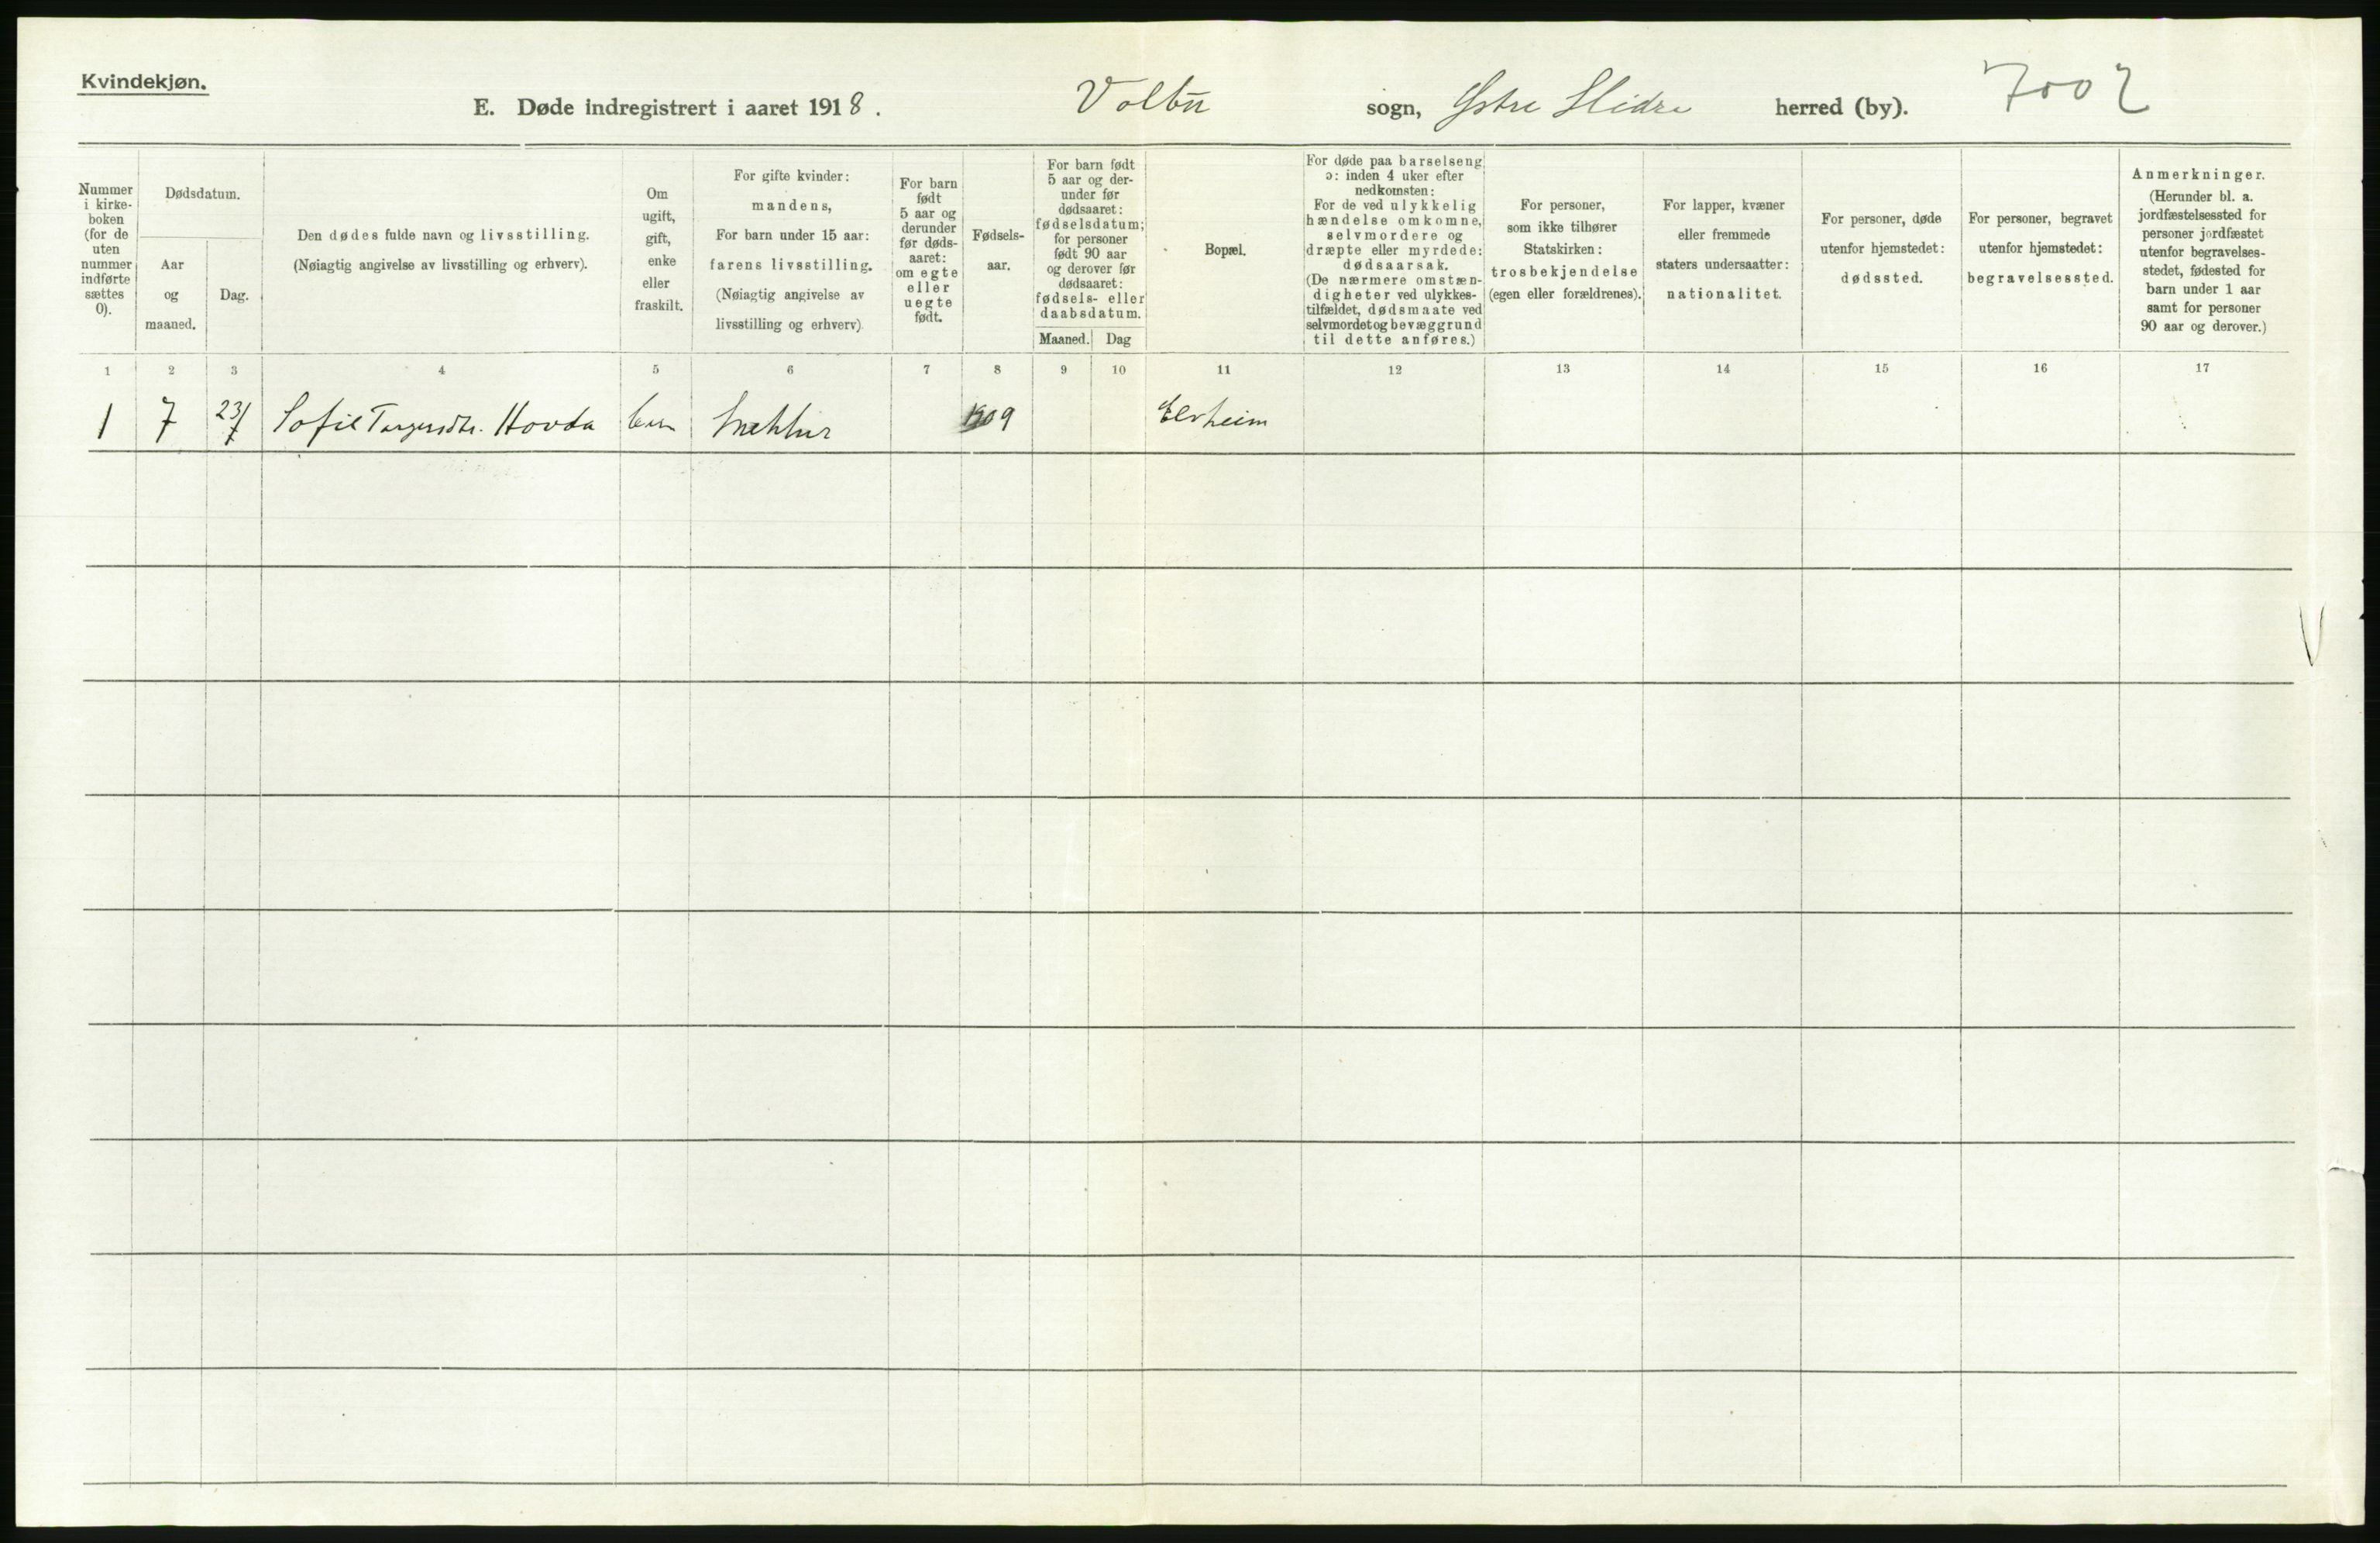 Kvindekjøn.
E. Døde indregistrert i aaret 1918. Volbu sogn, Østre Slidre herred (by). 7002
Nummer
i kirke-
boken
(for de
uten
nummer
indførte
sættes
0).
Dødsdatum.
Aar
og
maaned.
Dag.
Den dødes fulde navn og livsstilling.
(Nøiagtig angivelse av livsstilling og erhverv).
Om
ugift,
gift,
enke
eller
fraskilt.
For gifte kvinder:
mandens,
For barn under 15 aar:
farens livsstilling.
(Nøiagtig angivelse av
livsstilling og erhverv)
For barn
født
5 aar og
derunder
før døds-
aaret:
om egte
eller
uegte
født.
Fødsels-
aar.
For barn født
5 aar og der-
under før
dødsaaret:
fødselsdatum;
for personer
født 90 aar
og derover før
dødsaaret:
fødsels- eller
daabsdatum.
Maaned. Dag
Bopæl.
For døde paa barselseng
ɔ: inden 4 uker efter
nedkomsten:
For de ved ulykkelig
hændelse omkomne,
selvmordere og
dræpte eller myrdede:
dødsaarsak.
(De nærmere omstæn-
digheter ved ulykkes-
tilfældet, dødsmaate ved
selvmordet og bevæggrund
til dette anføres.)
For personer,
som ikke tilhører
Statskirken:
trosbekjendelse
(egen eller forældrenes).
For lapper, kvæner
eller fremmede
staters undersaatter:
nationalitet.
For personer, døde
utenfor hjemstedet:
dødssted.
For personer, begravet
utenfor hjemstedet:
begravelsessted.
Anmerkninger.
(Herunder bl. a.
jordfæstelsessted for
personer jordfæstet
utenfor begravelses-
stedet, fødested for
barn under 1 aar
samt for personer
90 aar og derover.)
1 2 3 4 5 6 7 8 9 10 11 12 13 14 15 16 17
1 7 23/7 Sofie Hovda 1909 Elvheim